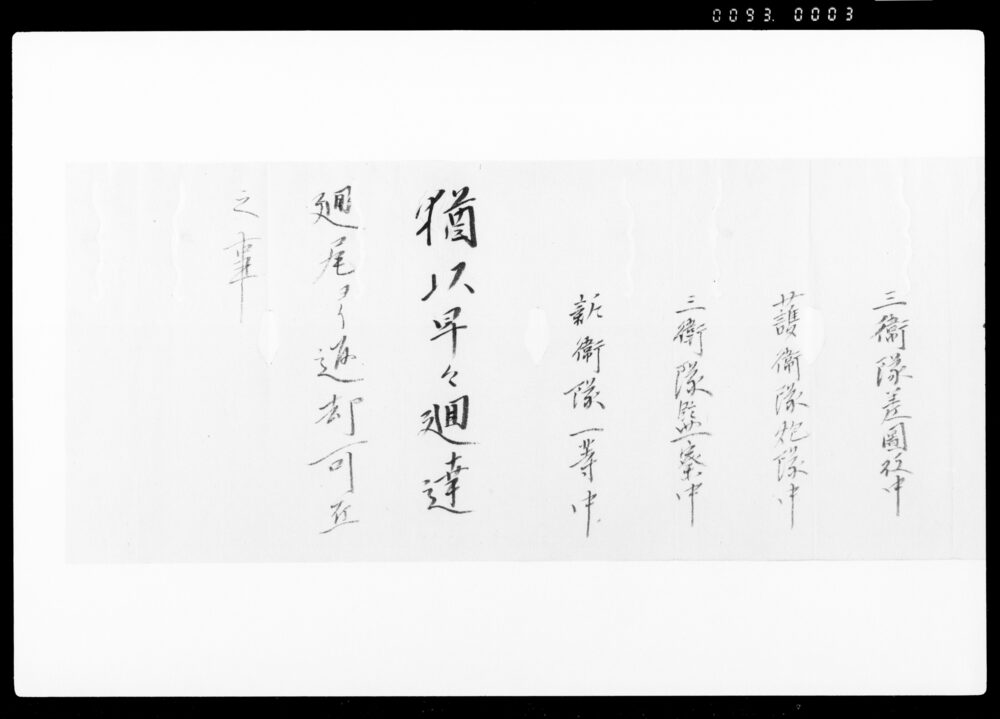 0093. 0003
三衛隊差圖役中
護衛隊炮隊中
三衛隊監察中
新衛隊一等中
猶以早々廻達
廻尾ゟ返却可
之事